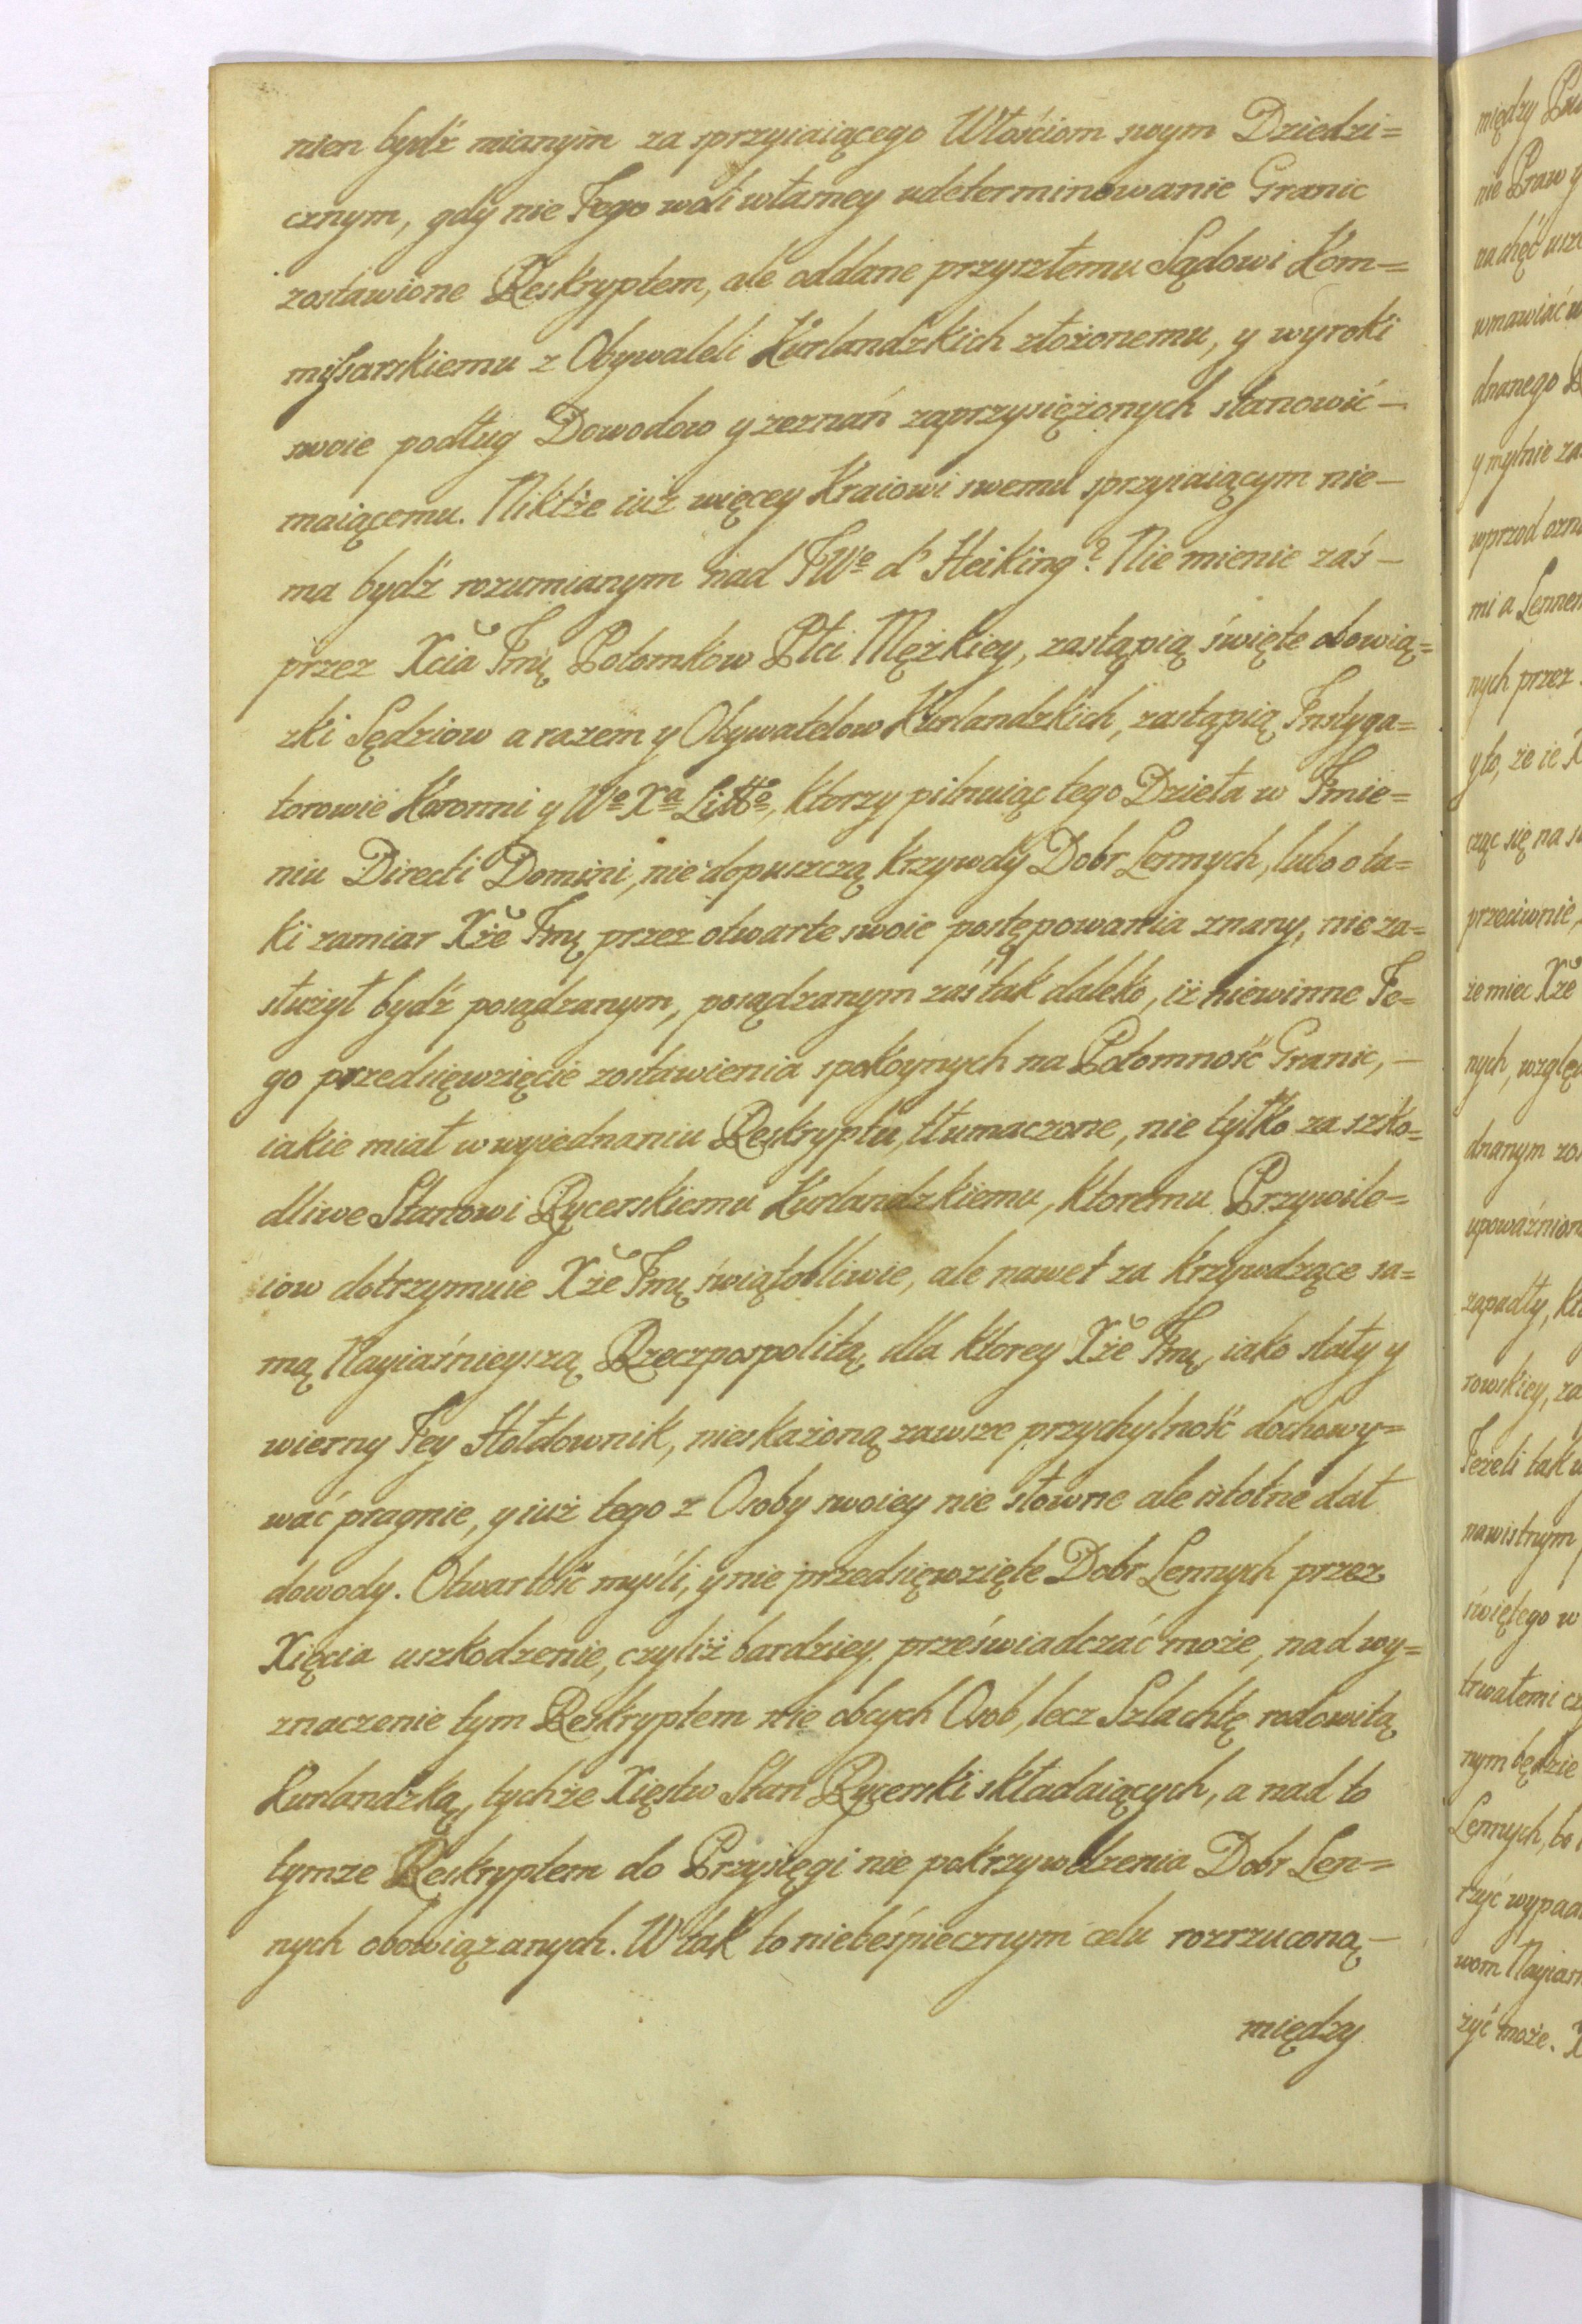 nien bydź mianym za sprzyiaiącego Włościom swym Dziedzi=
cznym, gdy nie Jego woli własney udeterminowanie Granic
zostawione Reskryptem, ale oddane przyszłemu Sądowi Kom=
missarskiemu z Obywateli Kurlandzkich złożonemu, y wyroki
swoie podług Dowodow y zeznań zaprzysiężonych stanowić –
maiącemu. Niktże iuż więcey Kraiowi swemu sprzyiaiącym nie –
ma bydź rozumianym nad JWo d' Heiking? Nie mienie zaś –
przez Xcia Jmę Potomkow Płci Męzkiey, zastąpią święte obowią=
zki Sędziow a razem y Obywatelow Kurlandzkich, zastąpią Instyga=
torowie Koronni y Wo Xa Litto, ktorzy pilnuiąc tego Dzieła w Jmie=
niu Directi Domini, nie dopuszczą krzywdy Dobr Lennych, lubo o ta=
ki zamiar Xże Jmę przez otwarte swoie postępowania znany, nie za=
służył bydź posądzanym, posądzanym zaś tak daleko, iż niewinne Je=
go przedsięwzięcie zostawienia spokoynych na Potomność Granic, –
iakie miał w wyiednaniu Reskryptu, tłumaczone, nie tylko za szko=
dliwe Stanowi Rycerskiemu Kurlandzkiemu, ktoremu Przywile=
iow dotrzymuie Xże Jmę świątobliwie, ale nawet za krzywdzące sa=
mą Nayiaśnieyszą Rzeczpospolitą, dla ktorey Xże Jmę, iako stały y
wierny Jey Hołdownik, nieskażoną zawsze przychylność dochowy=
wać pragnie, y iuż tego z Osoby swoiey nie słowne ale istotne dał
dowody. Otwartość myśli, y nie przedsięwzięte Dobr Lennych przez
Xięcia uszkodzenie, czyliż bardziey przeświadczać może, nad wy=
znaczenie tym Reskryptem nie obcych Osob, lecz Szlachtę rodowitą
Kurlandzką, tychże Xięstw Stan Rycerski składaiących, a nad to
tymże Reskryptem do Przysięgi nie pokrzywdzenia Dobr Len=
nych obowiązanych. W tak to niebeśpiecznym celu rozrzuconą –
między